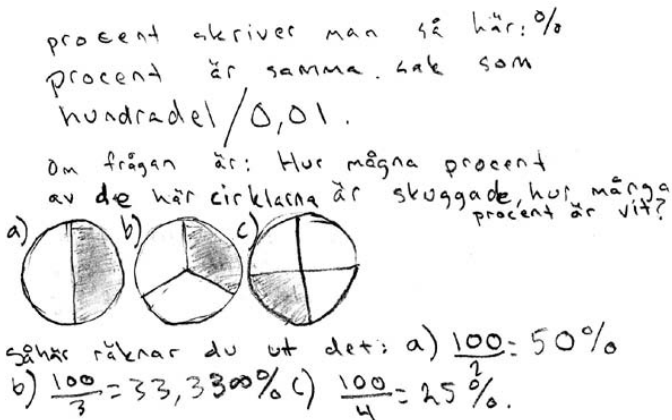 procent skriver man så här: %
procent är samma. sak som
hundradel/0,01.
Om frågan är: Hur mågna procent
av de här cirklarna är skuggade, hur många
procent är vit?
a) b) c)
såhär räknar du ut det: a) 100/2 = 50%
b) 100/3 = 33,3300% c) 100/4 = 25%.